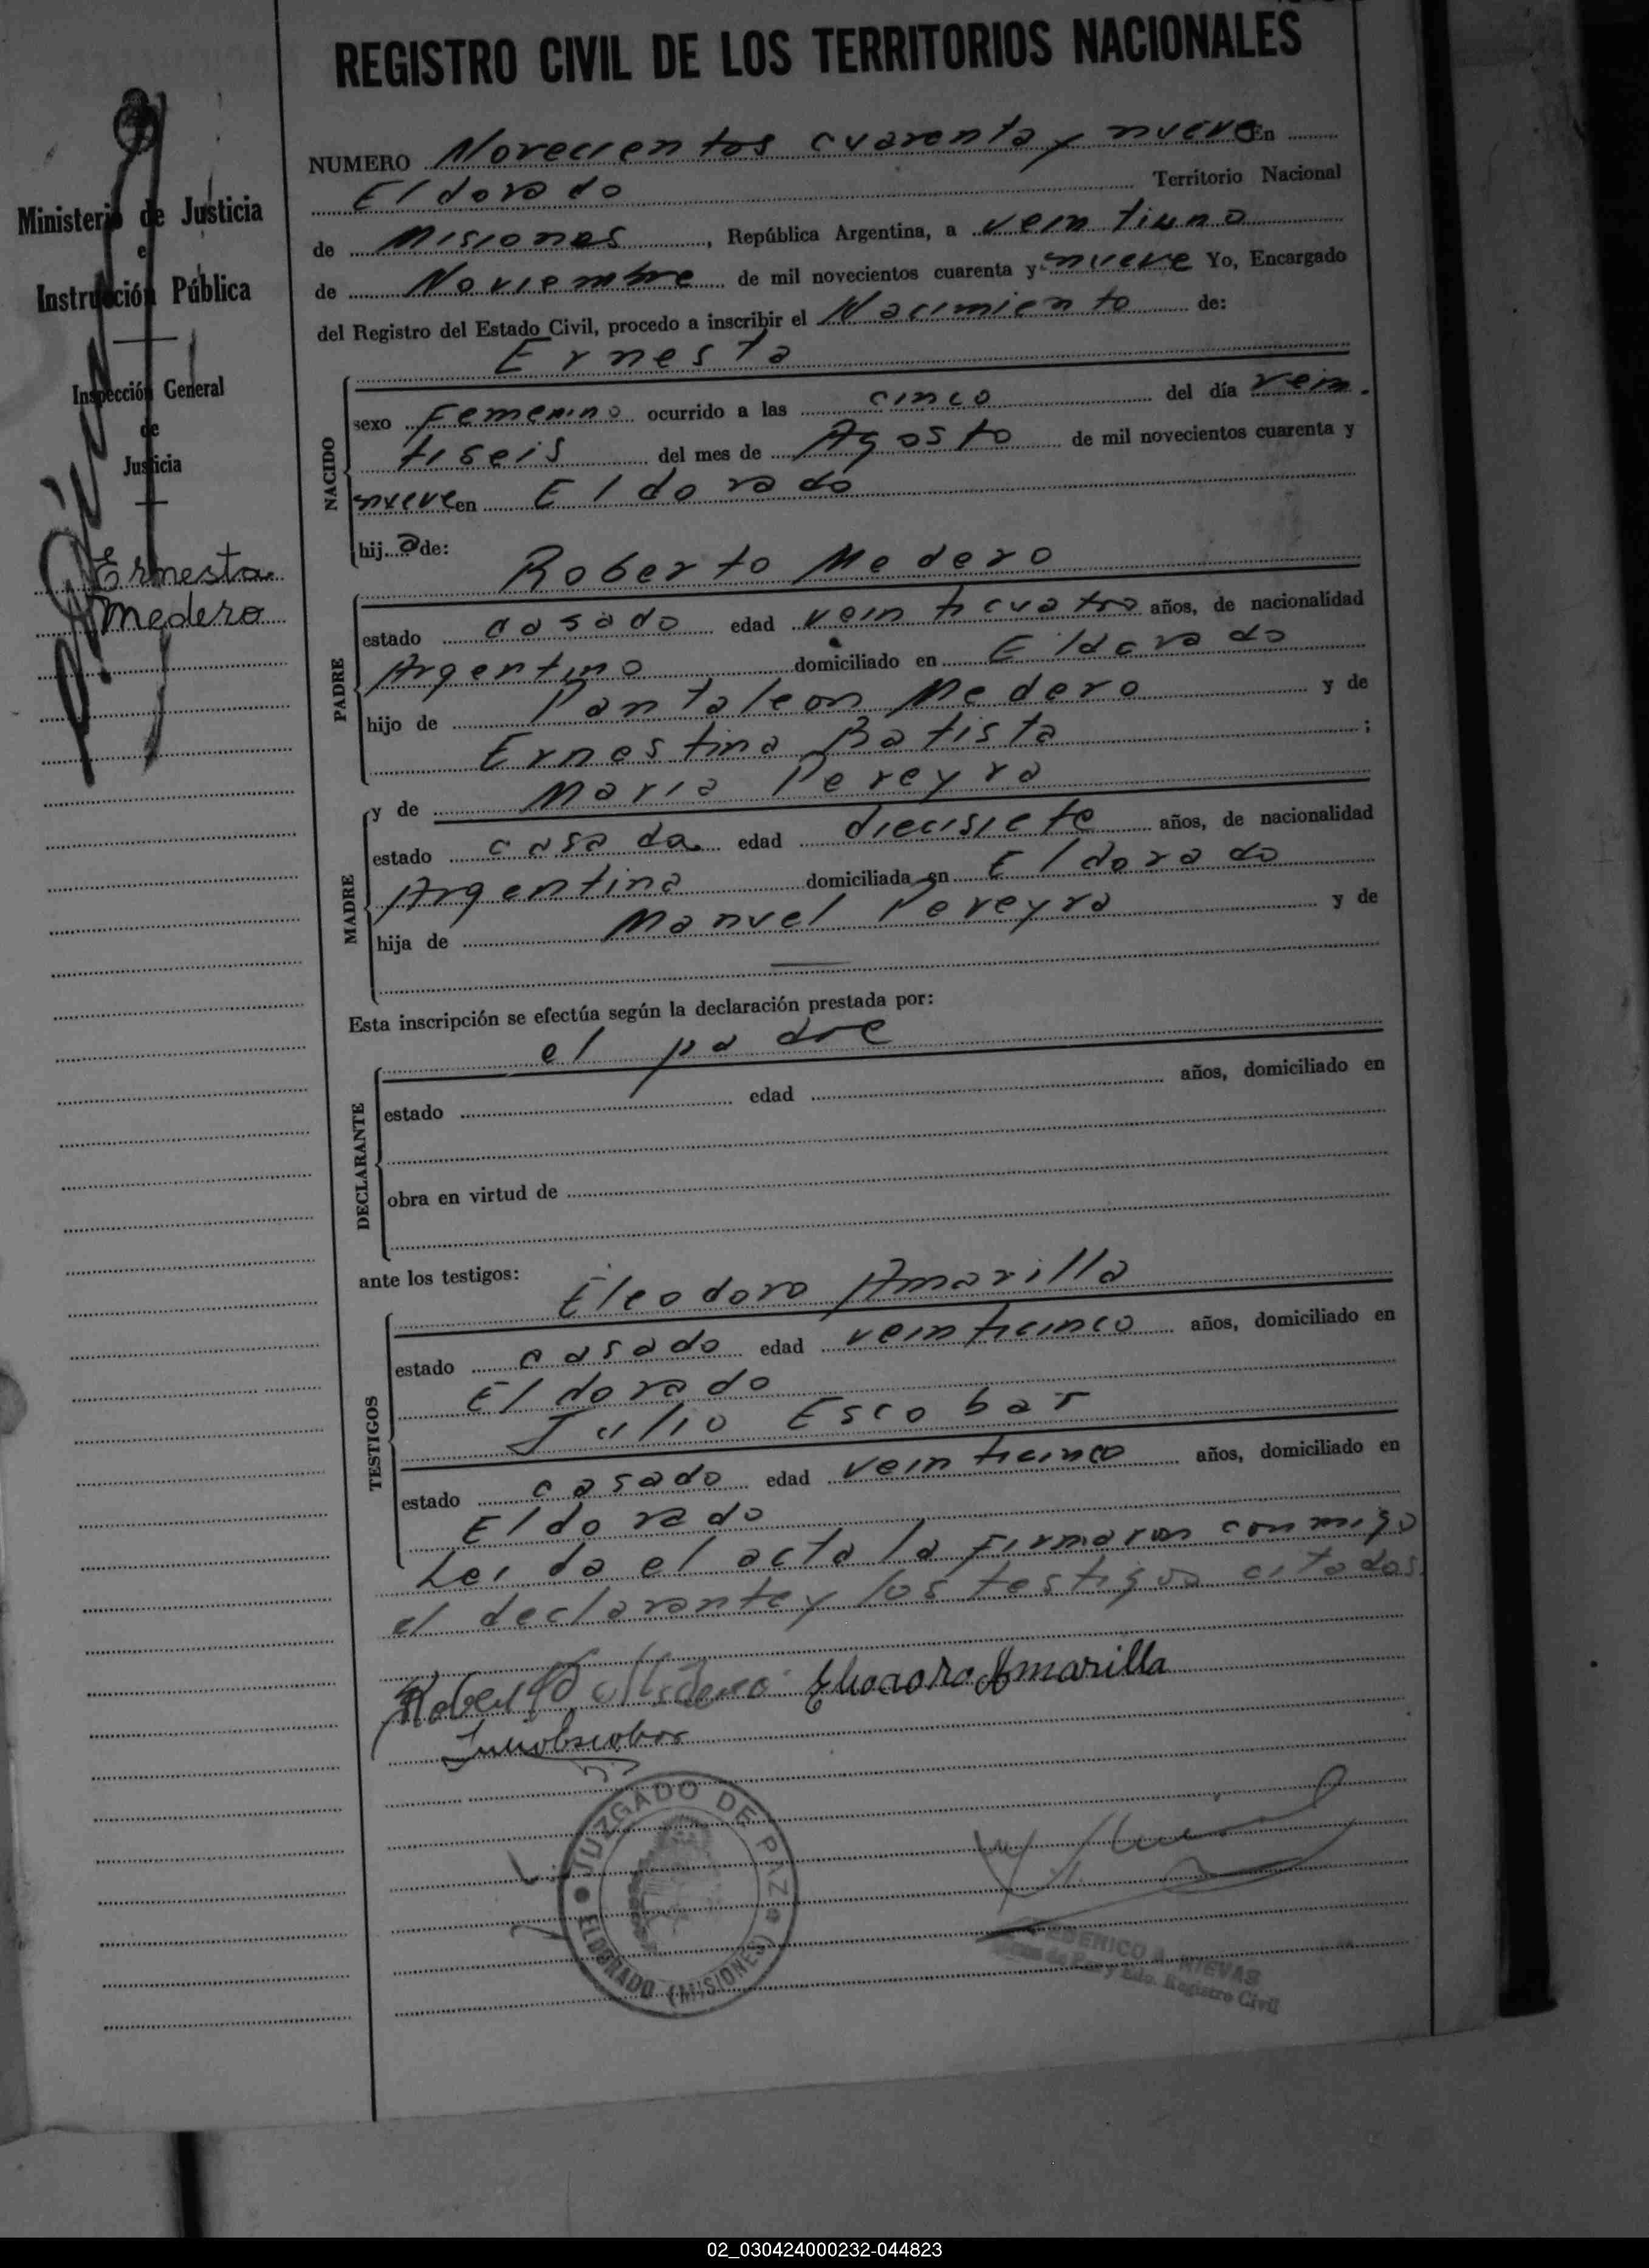 REGISTRO CIVIL DE LOS TERRITORIOS NACIONALES
Ministerio de Justicia
e
Instrucción Pública
Inspección General
de
Justicia
Ernesta
Medero
NUMERO Novecientos cuarenta y nueve En
Eldorado Territorio Nacional
de Misiones, República Argentina, a veintiuno
de Noviembre de mil novecientos cuarenta y nueve Yo, Encargado
del Registro del Estado Civil, procedo a inscribir el Nacimiento de:
Ernesta
NACIDO
sexo Femenino ocurrido a las cinco del día vein
tiseis del mes de Agosto de mil novecientos cuarenta y
nueve en Eldorado
hija de:
Roberto Medero
PADRE
estado casado edad veinticuatro años, de nacionalidad
Argentino domiciliado en Eldorado
hijo de Pantaleon Medero y de
Ernestina Batista ;
y de Maria Pereyra
MADRE
estado casada edad diecisiete años, de nacionalidad
Argentina domiciliada en Eldorado
hija de Manuel Pereyra y de
Esta inscripción se efectúa según la declaración prestada por:
el padre
DECLARANTE
estado edad años, domiciliado en
obra en virtud de
ante los testigos:
Eleodoro Amarilla
TESTIGOS
estado casado edad veinticinco años, domiciliado en
Eldorado
Julio Escobar
estado casado edad veinticinco años, domiciliado en
Eldorado
Leida el acta la firmaron conmigo
el declarante y los testigos citados
Roberto Medero Eleodoro Amarilla
Julio Escobar
JUZGADO DE PAZ
ELDORADO (MISIONES)
FEDERICO A. NIEVAS
de Paz y Edo. Registro Civil
02_030424000232-044823